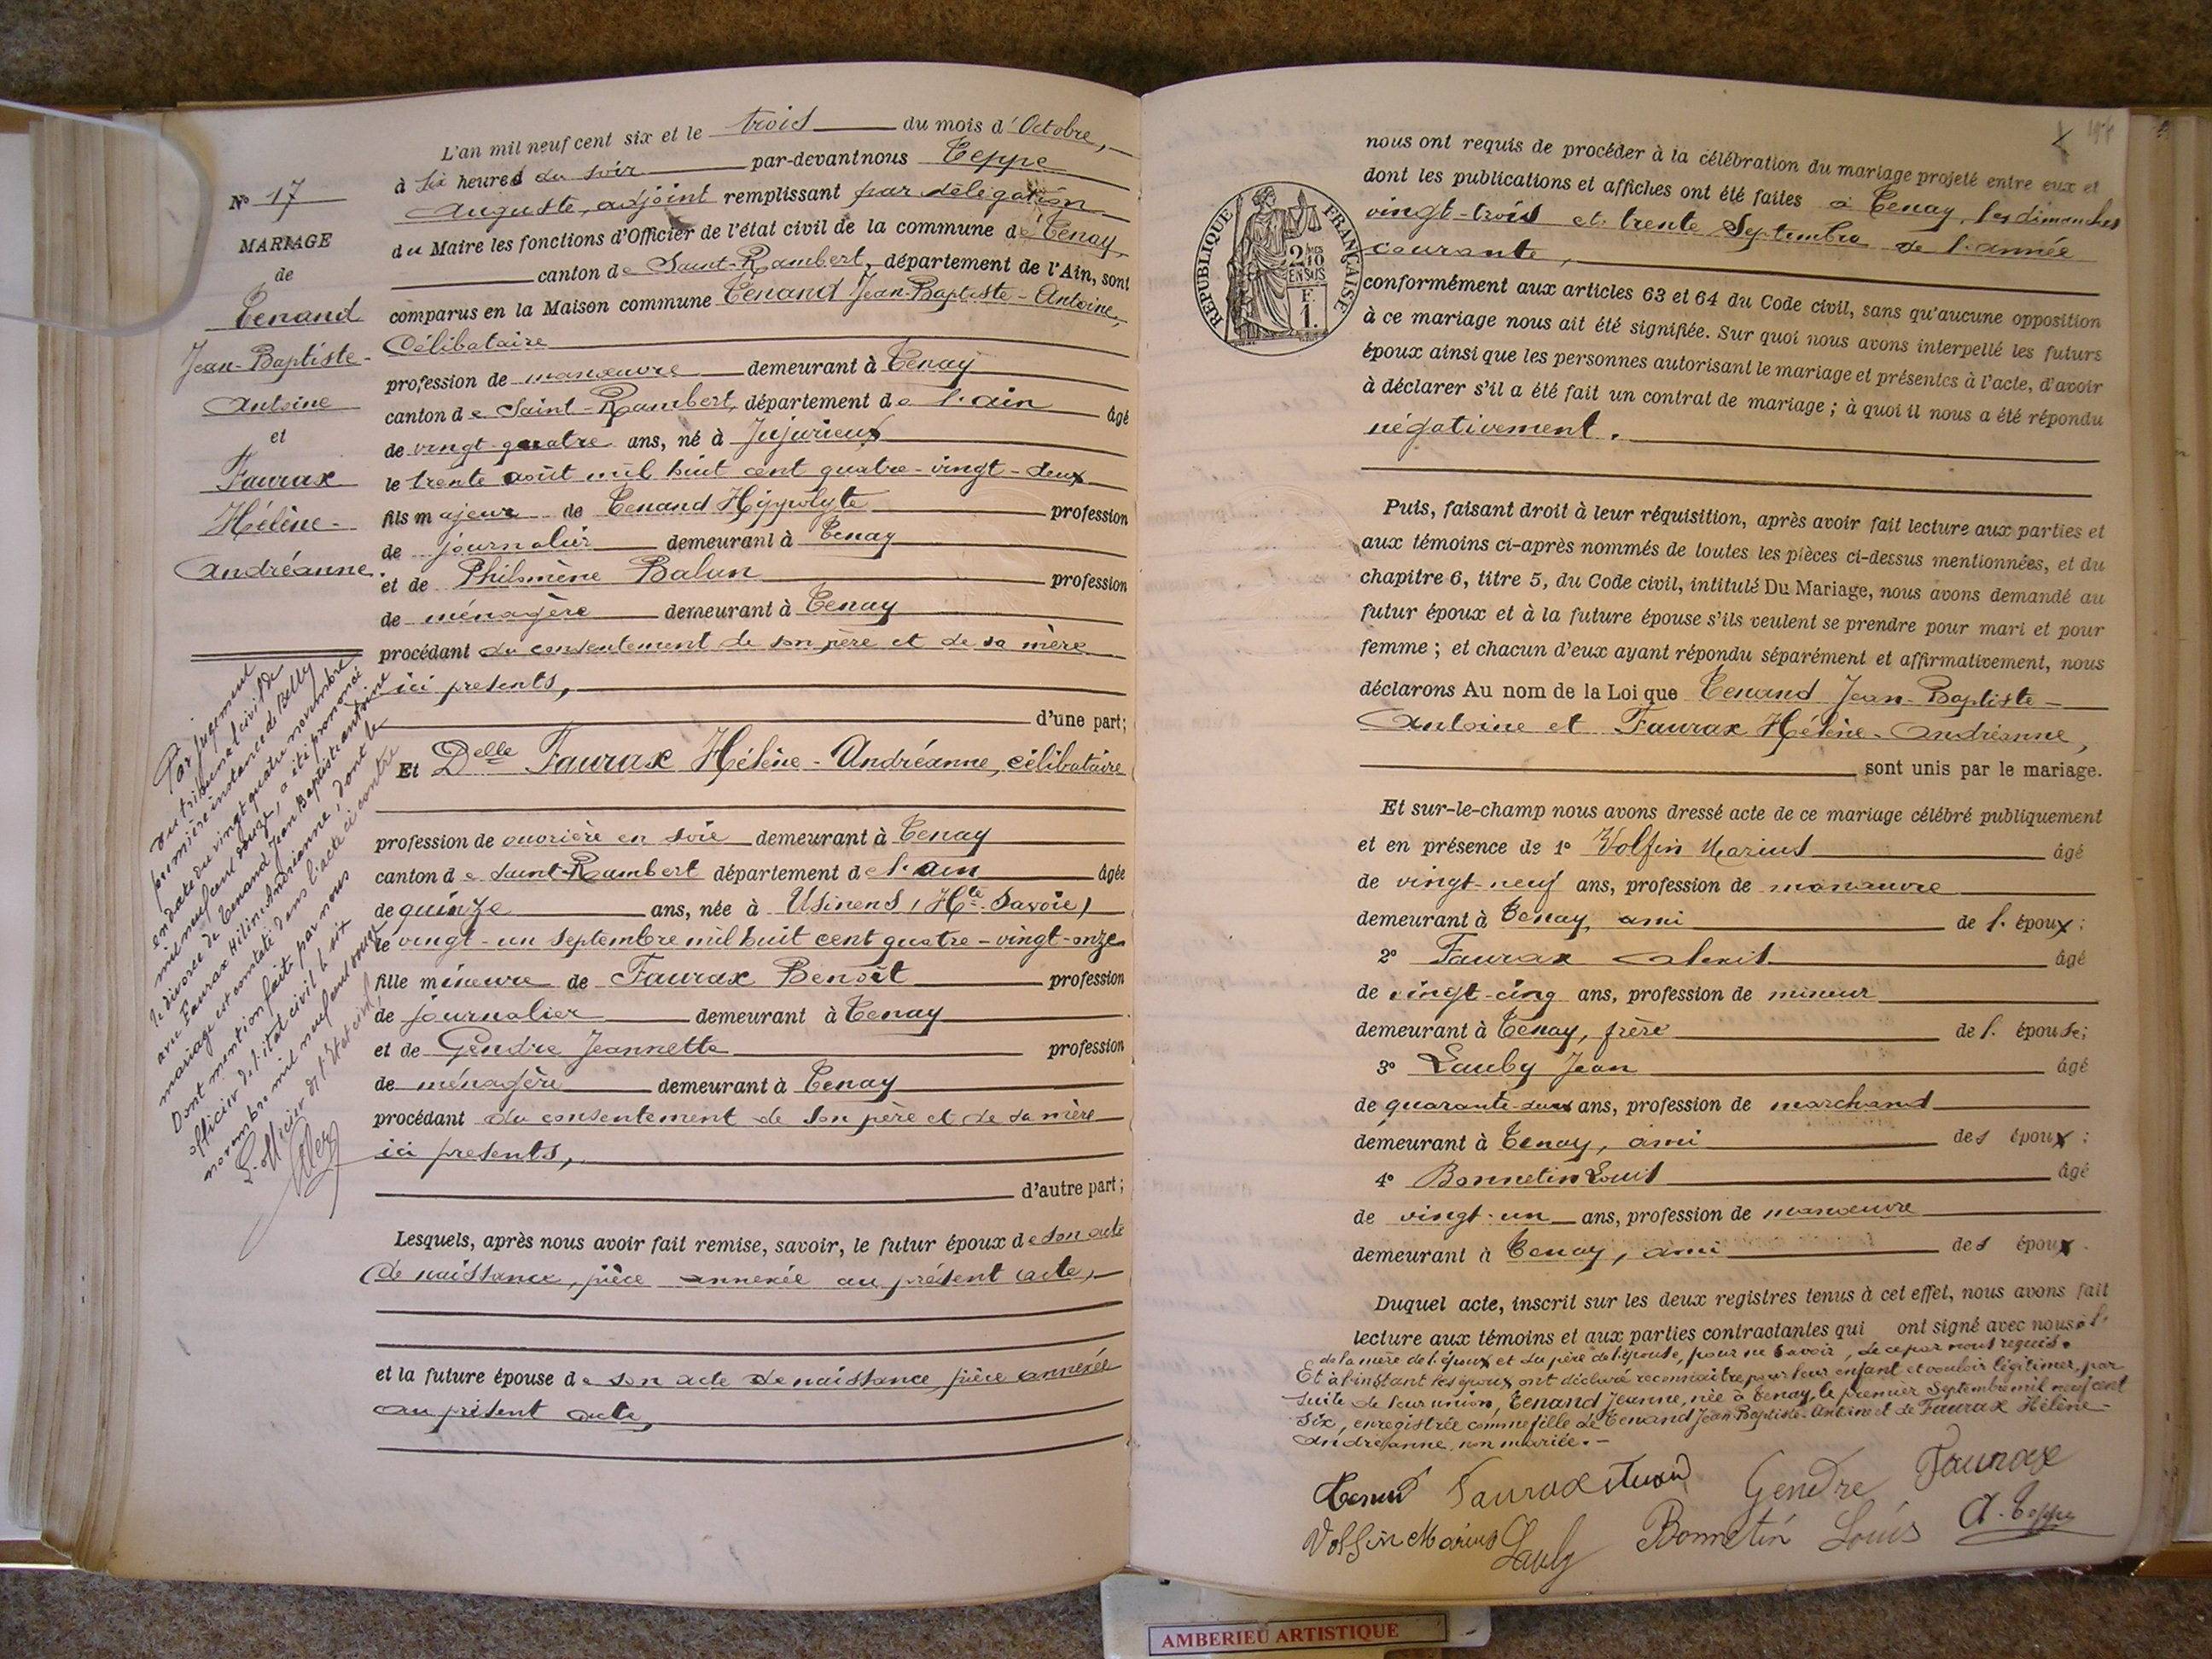 N° 17
MARIAGE
de
Tenand
Jean-Baptiste-
Antoine
et
Faurax
Hélène-
Andréanne.
L'an mil neuf cent six et le trois du mois d'Octobre,
à six heures du soir par-devant nous Teppe
Auguste, adjoint remplissant par délégation
du Maire les fonctions d'Officier de l'état civil de la commune de Tenay,
canton de Saint-Rambert, département de l'Ain, sont
comparus en la Maison commune Tenand Jean-Baptiste-Antoine,
Célibataire
profession de manœuvre demeurant à Tenay
canton de Saint-Rambert, département de l'ain âgé
de vingt-quatre ans, né à Jujurieux
le trente août mil huit cent quatre-vingt-deux
fils majeur de Tenand Hippolyte profession
de journalier demeurant à Tenay
et de Philomène Balan profession
de ménagère demeurant à Tenay
procédant du consentement de son père et de sa mère
ici présents,
d'une part;
Et Delle Faurax Hélène-Andréanne, célibataire
profession de ouvrière en soie demeurant à Tenay
canton de Saint-Rambert département de l'ain âgée
de quinze ans, née à Usinens (Hte Savoie)
le vingt-un septembre mil huit cent quatre-vingt-onze
fille mineure de Faurax Benoît profession
de journalier demeurant à Tenay
et de Gendre Jeannette profession
de ménagère demeurant à Tenay
procédant du consentement de son père et de sa mère
ici présents,
d'autre part;
Lesquels, après nous avoir fait remise, savoir, le futur époux de son acte
de naissance, pièce annexée au présent acte,
et la future épouse de son acte de naissance, pièce annexée
au présent acte,
Par jugement
du tribunal civil de
première instance de Belley
en date du vingt quatre novembre
mil neuf cent douze, a été prononcé
le divorce de Tenand Jean Baptiste antoine
avec Faurax Hélène Andréanne, dont le
mariage est constaté dans l'acte ci contre
Dont mention faite par nous
officier de l'état civil le dit
novembre mil neuf cent douze
L'officier de l'Etat civil
nous ont requis de procéder à la célébration du mariage projeté entre eux et
dont les publications et affiches ont été faites à Tenay, les dimanches
vingt-trois et trente Septembre de l'année
courante,
conformément aux articles 63 et 64 du Code civil, sans qu'aucune opposition
à ce mariage nous ait été signifiée. Sur quoi nous avons interpellé les futurs
époux ainsi que les personnes autorisant le mariage et présentes à l'acte, d'avoir
à déclarer s'il a été fait un contrat de mariage; à quoi il nous a été répondu
négativement.
RÉPUBLIQUE FRANÇAISE
2/10 EN SUS
F. 1.
Puis, faisant droit à leur réquisition, après avoir fait lecture aux parties et
aux témoins ci-après nommés de toutes les pièces ci-dessus mentionnées, et du
chapitre 6, titre 5, du Code civil, intitulé Du Mariage, nous avons demandé au
futur époux et à la future épouse s'ils veulent se prendre pour mari et pour
femme; et chacun d'eux ayant répondu séparément et affirmativement, nous
déclarons Au nom de la Loi que Tenand Jean-Baptiste-
Antoine et Faurax Hélène-Andréanne,
sont unis par le mariage.
Et sur-le-champ nous avons dressé acte de ce mariage célébré publiquement
et en présence de 1° Volfin Marius âgé
de vingt-neuf ans, profession de manœuvre
demeurant à Tenay, ami de l'époux;
2° Faurax Alexis âgé
de vingt-cinq ans, profession de mineur
demeurant à Tenay, frère de l'épouse;
3° Lauby Jean âgé
de quarante-deux ans, profession de marchand
demeurant à Tenay, ami des époux;
4° Bonnetin Louis âgé
de vingt-un ans, profession de manœuvre
demeurant à Tenay, ami des époux.
Duquel acte, inscrit sur les deux registres tenus à cet effet, nous avons fait
lecture aux témoins et aux parties contractantes qui ont signé avec nous
de la mère de l'époux et du père de l'épouse, pour ne savoir, de ce par nous requis.
Et à l'instant les époux ont déclaré reconnaître pour leur enfant et vouloir légitimer, par
suite de leur union, Tenand Jeanne, née à Tenay, le premier Septembre mil neuf cent
six, enregistrée comme fille de Tenand Jean-Baptiste-Antoine et de Faurax Hélène-
Andréanne, non mariée.-
Faurax Gendre Faurax
Volfin Marius Lauby Bonnetin Louis A. Teppe
AMBERIEU ARTISTIQUE